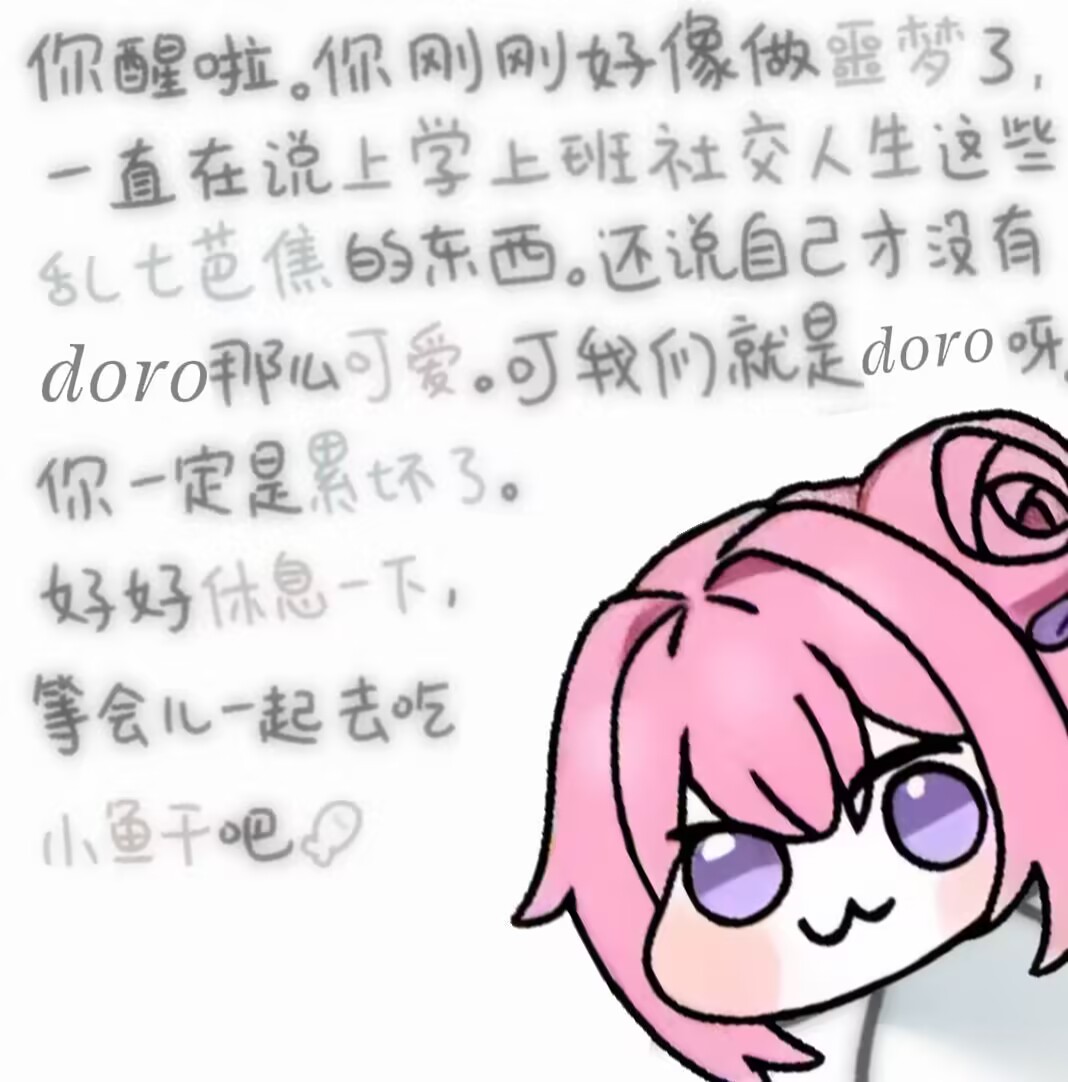 你醒啦。你刚刚好像做噩梦了，
一直在说上学上班社交人生这些
乱七芭蕉的东西。还说自己才没有
doro那么可爱。可我们就是doro呀。
你一定是累坏了。
好好休息一下，
等会儿一起去吃
小鱼干吧